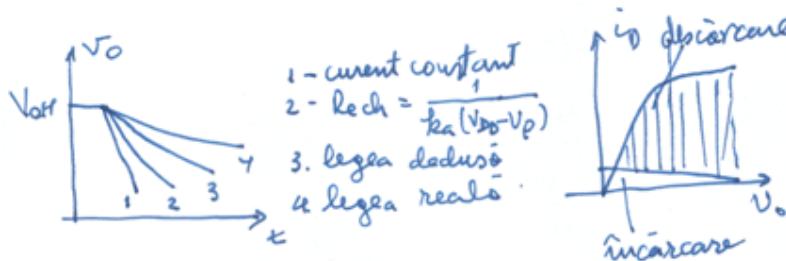 v₀
V_OH
1 2 3 4
t
1 - curent constant
2 - Rech = 1 / (ka(V_DD - V_P))
3. legea dedusă
4 legea reală.
i_D descărcare
încărcare
v₀